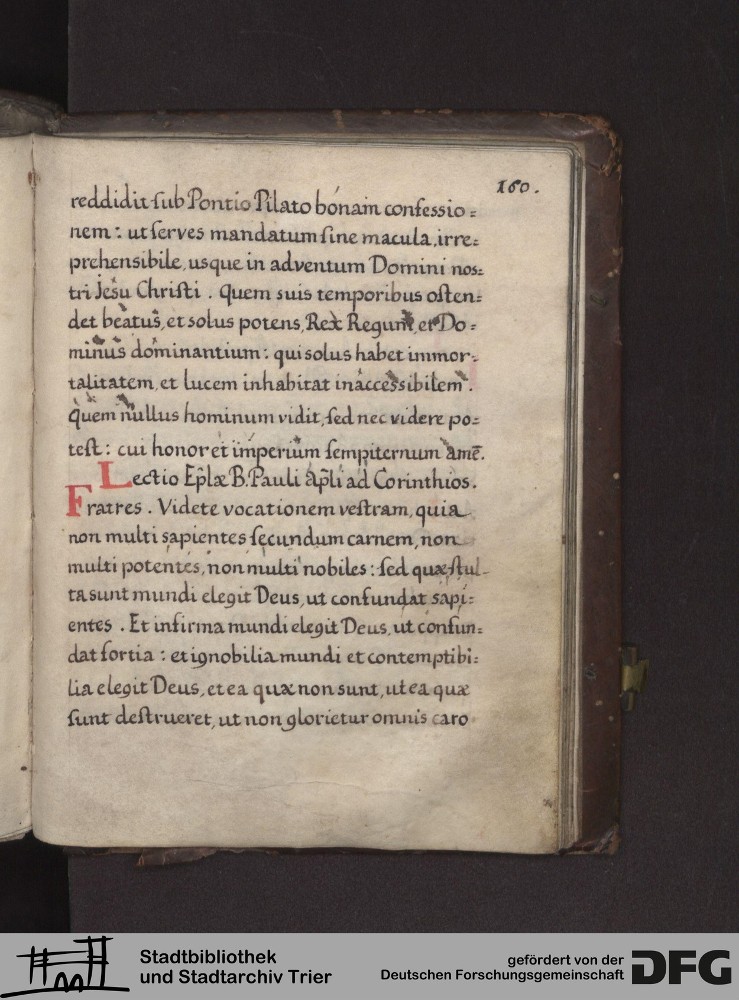 160.
reddidit sub Pontio Pilato bonam confessio=
nem: ut serves mandatum sine macula, irre=
prehensibile, usque in adventum Domini nos=
tri Jesu Christi. Quem suis temporibus osten=
det beatus, et solus potens, Rex Regum, et Do=
minus dominantium: qui solus habet immor=
talitatem, et lucem inhabitat inaccessibilem.
Quem nullus hominum vidit, sed nec videre po=
test: cui honor et imperium sempiternum amē.
Lectio Ep̃læ B. Pauli Ap̃li ad Corinthios.
Fratres. Videte vocationem vestram, quia
non multi sapientes secundum carnem, non
multi potentes, non multi nobiles: sed quæ stul-
ta sunt mundi elegit Deus, ut confundat sapi=
entes. Et infirma mundi elegit Deus, ut confun=
dat fortia: et ignobilia mundi et contemptibi=
lia elegit Deus, et ea quæ non sunt, ut ea quæ
sunt destrueret, ut non glorietur omnis caro
Stadtbibliothek
und Stadtarchiv Trier
gefördert von der
Deutschen Forschungsgemeinschaft
DFG